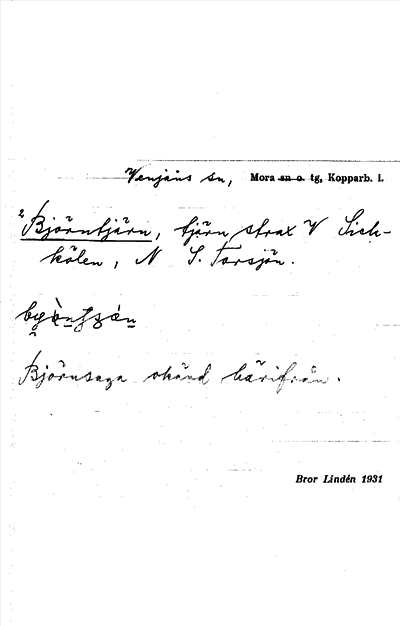 Venjans sn, Mora sn o. tg, Kopparb. l.
2 Björntjärn, tjärn strax V Lick-
kölen, N S. Torsjön.
Björnsaga okänd härifrån.
Bror Lindén 1931